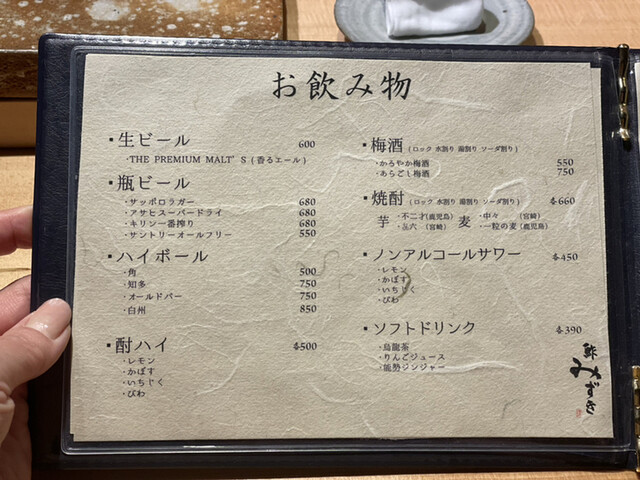 お飲み物
▪生ビール 600
・THE PREMIUM MALT'S (香るエール)
▪瓶ビール
・サッポロラガー 680
・アサヒスーパードライ 680
・キリン一番搾り 680
・サントリーオールフリー 550
▪ハイボール
・角 500
・知多 750
・オールドパー 750
・白州 850
▪酎ハイ 各500
・レモン
・かぼす
・いちじく
・びわ
▪梅酒 (ロック 水割り 湯割り ソーダ割り)
・かろやか梅酒 550
・あらごし梅酒 750
▪焼酎 (ロック 水割り 湯割り ソーダ割り) 各660
芋 ・不二才(鹿児島) 麦 ・中々 (宮崎)
・㐂六 (宮崎) ・一粒の麦(鹿児島)
▪ノンアルコールサワー 各450
・レモン
・かぼす
・いちじく
・びわ
▪ソフトドリンク 各390
・烏龍茶
・りんごジュース
・能勢ジンジャー
鮨
みずき